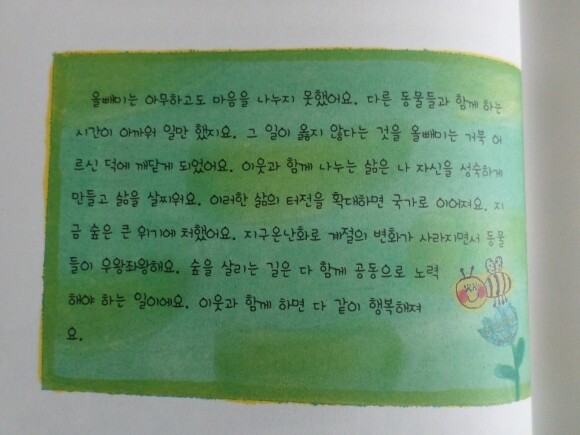 올빼미는 아무하고도 마음을 나누지 못했어요. 다른 동물들과 함께 하는
시간이 아까워 일만 했지요. 그 일이 옳지 않다는 것을 올빼미는 거북 어
르신 덕에 깨닫게 되었어요. 이웃과 함께 나누는 삶은 나 자신을 성숙하게
만들고 삶을 살찌워요. 이러한 삶의 터전을 확대하면 국가로 이어져요. 지
금 숲은 큰 위기에 처했어요. 지구온난화로 계절의 변화가 사라지면서 동물
들이 우왕좌왕해요. 숲을 살리는 길은 다 함께 공동으로 노력
해야 하는 일이에요. 이웃과 함께 하면 다 같이 행복해져
요.